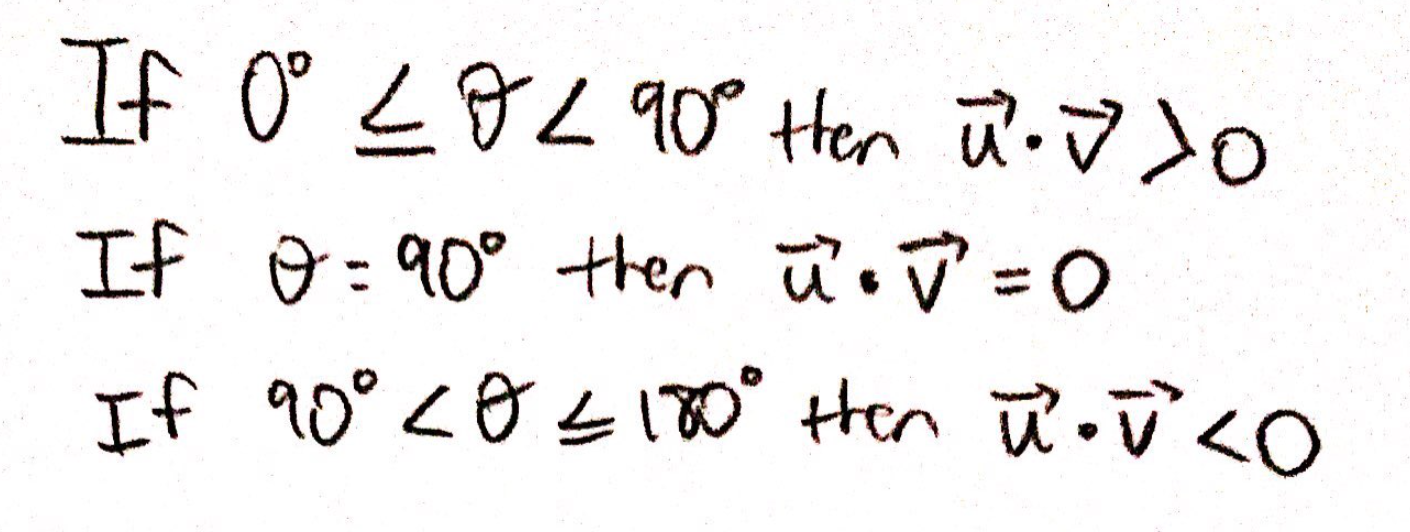 If 0° ≤ θ < 90° then u⃗ · v⃗ > 0
If θ = 90° then u⃗ · v⃗ = 0
If 90° < θ ≤ 180° then u⃗ · v⃗ < 0